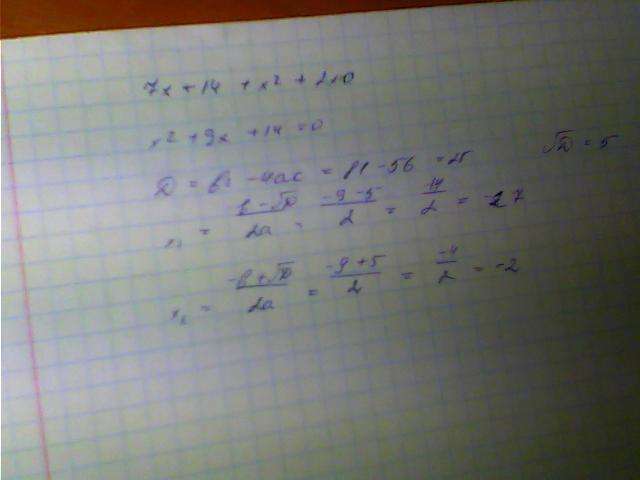 7x + 14 + x² + 2x=0
x² + 9x + 14 = 0
D = b² - 4ac = 81 - 56 = 25 √D = 5
x₁ = b - √D / 2a = -9 - 5 / 2 = -14 / 2 = -7
x₂ = -b + √D / 2a = -9 + 5 / 2 = -4 / 2 = -2